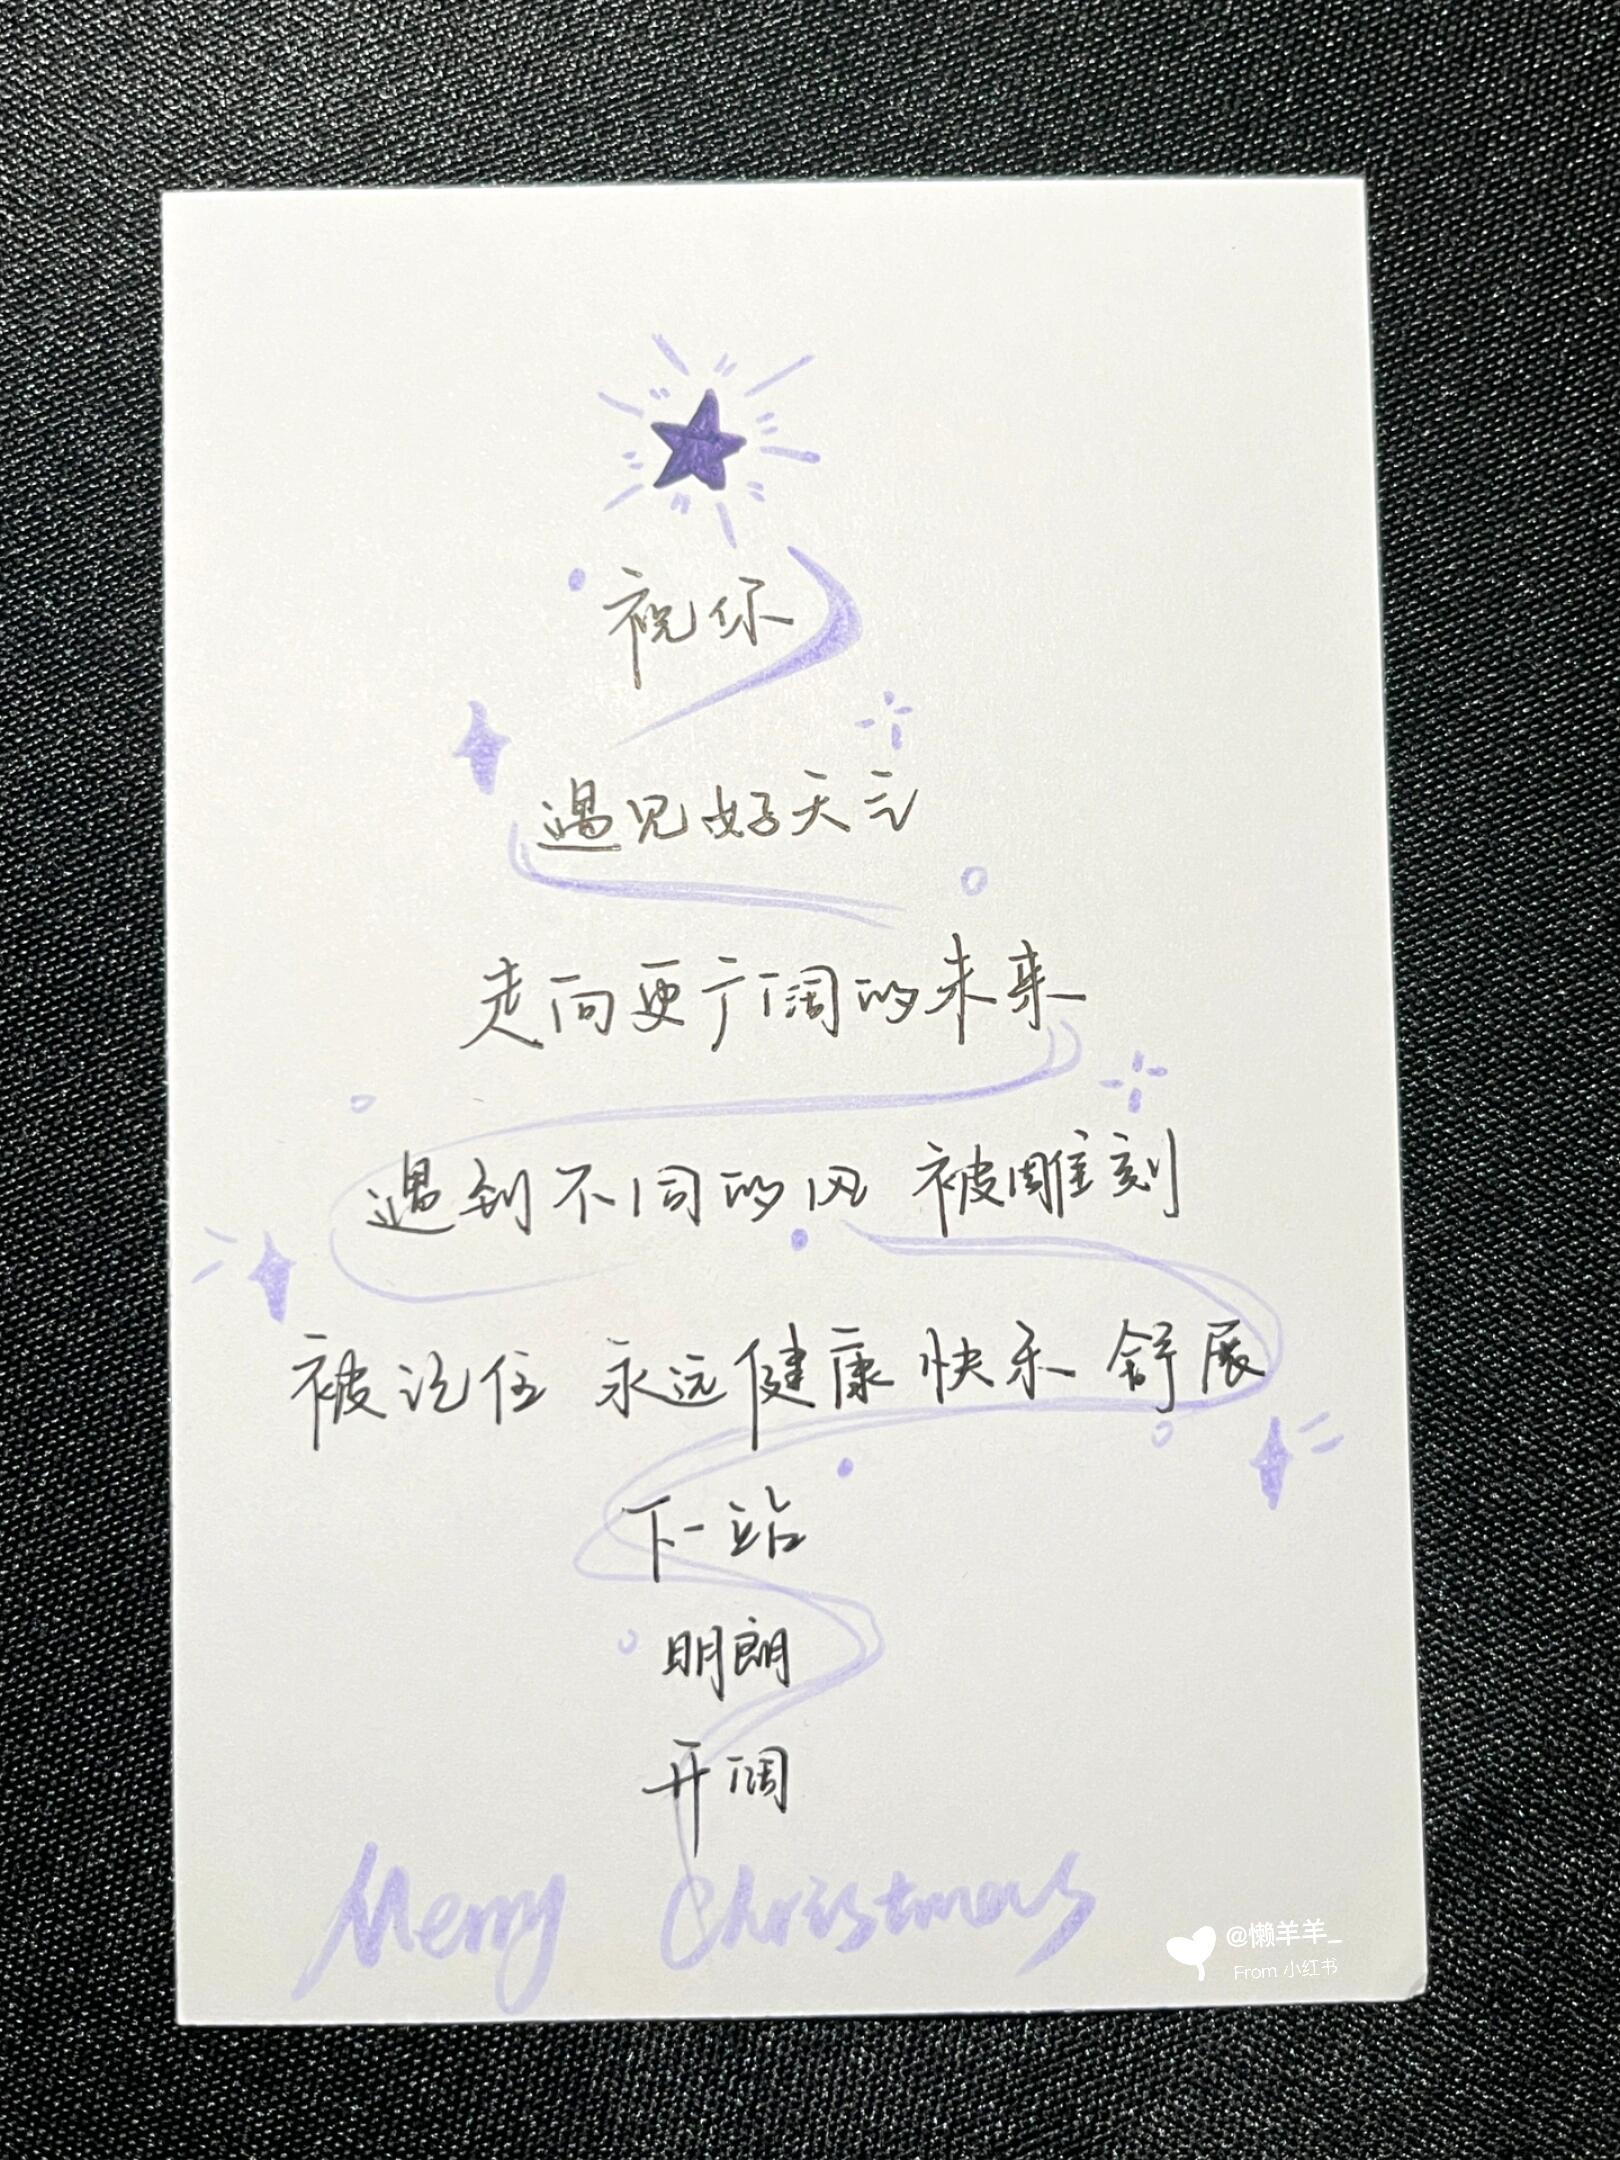 祝你
遇见好天气
走向更广阔的未来
遇到不同的风 被雕刻
被记住 永远健康 快乐 舒展
下一站
明朗
开阔
Merry Christmas
@懒羊羊_
From 小红书